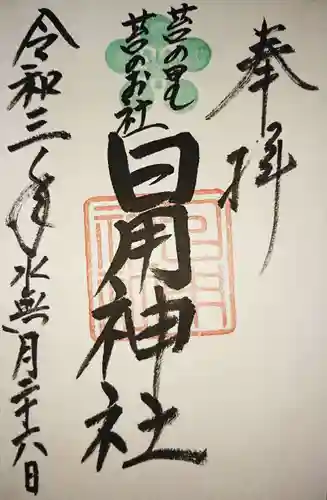 奉拝
苔の里
苔のお社
日用神社
令和三年水無月二十六日